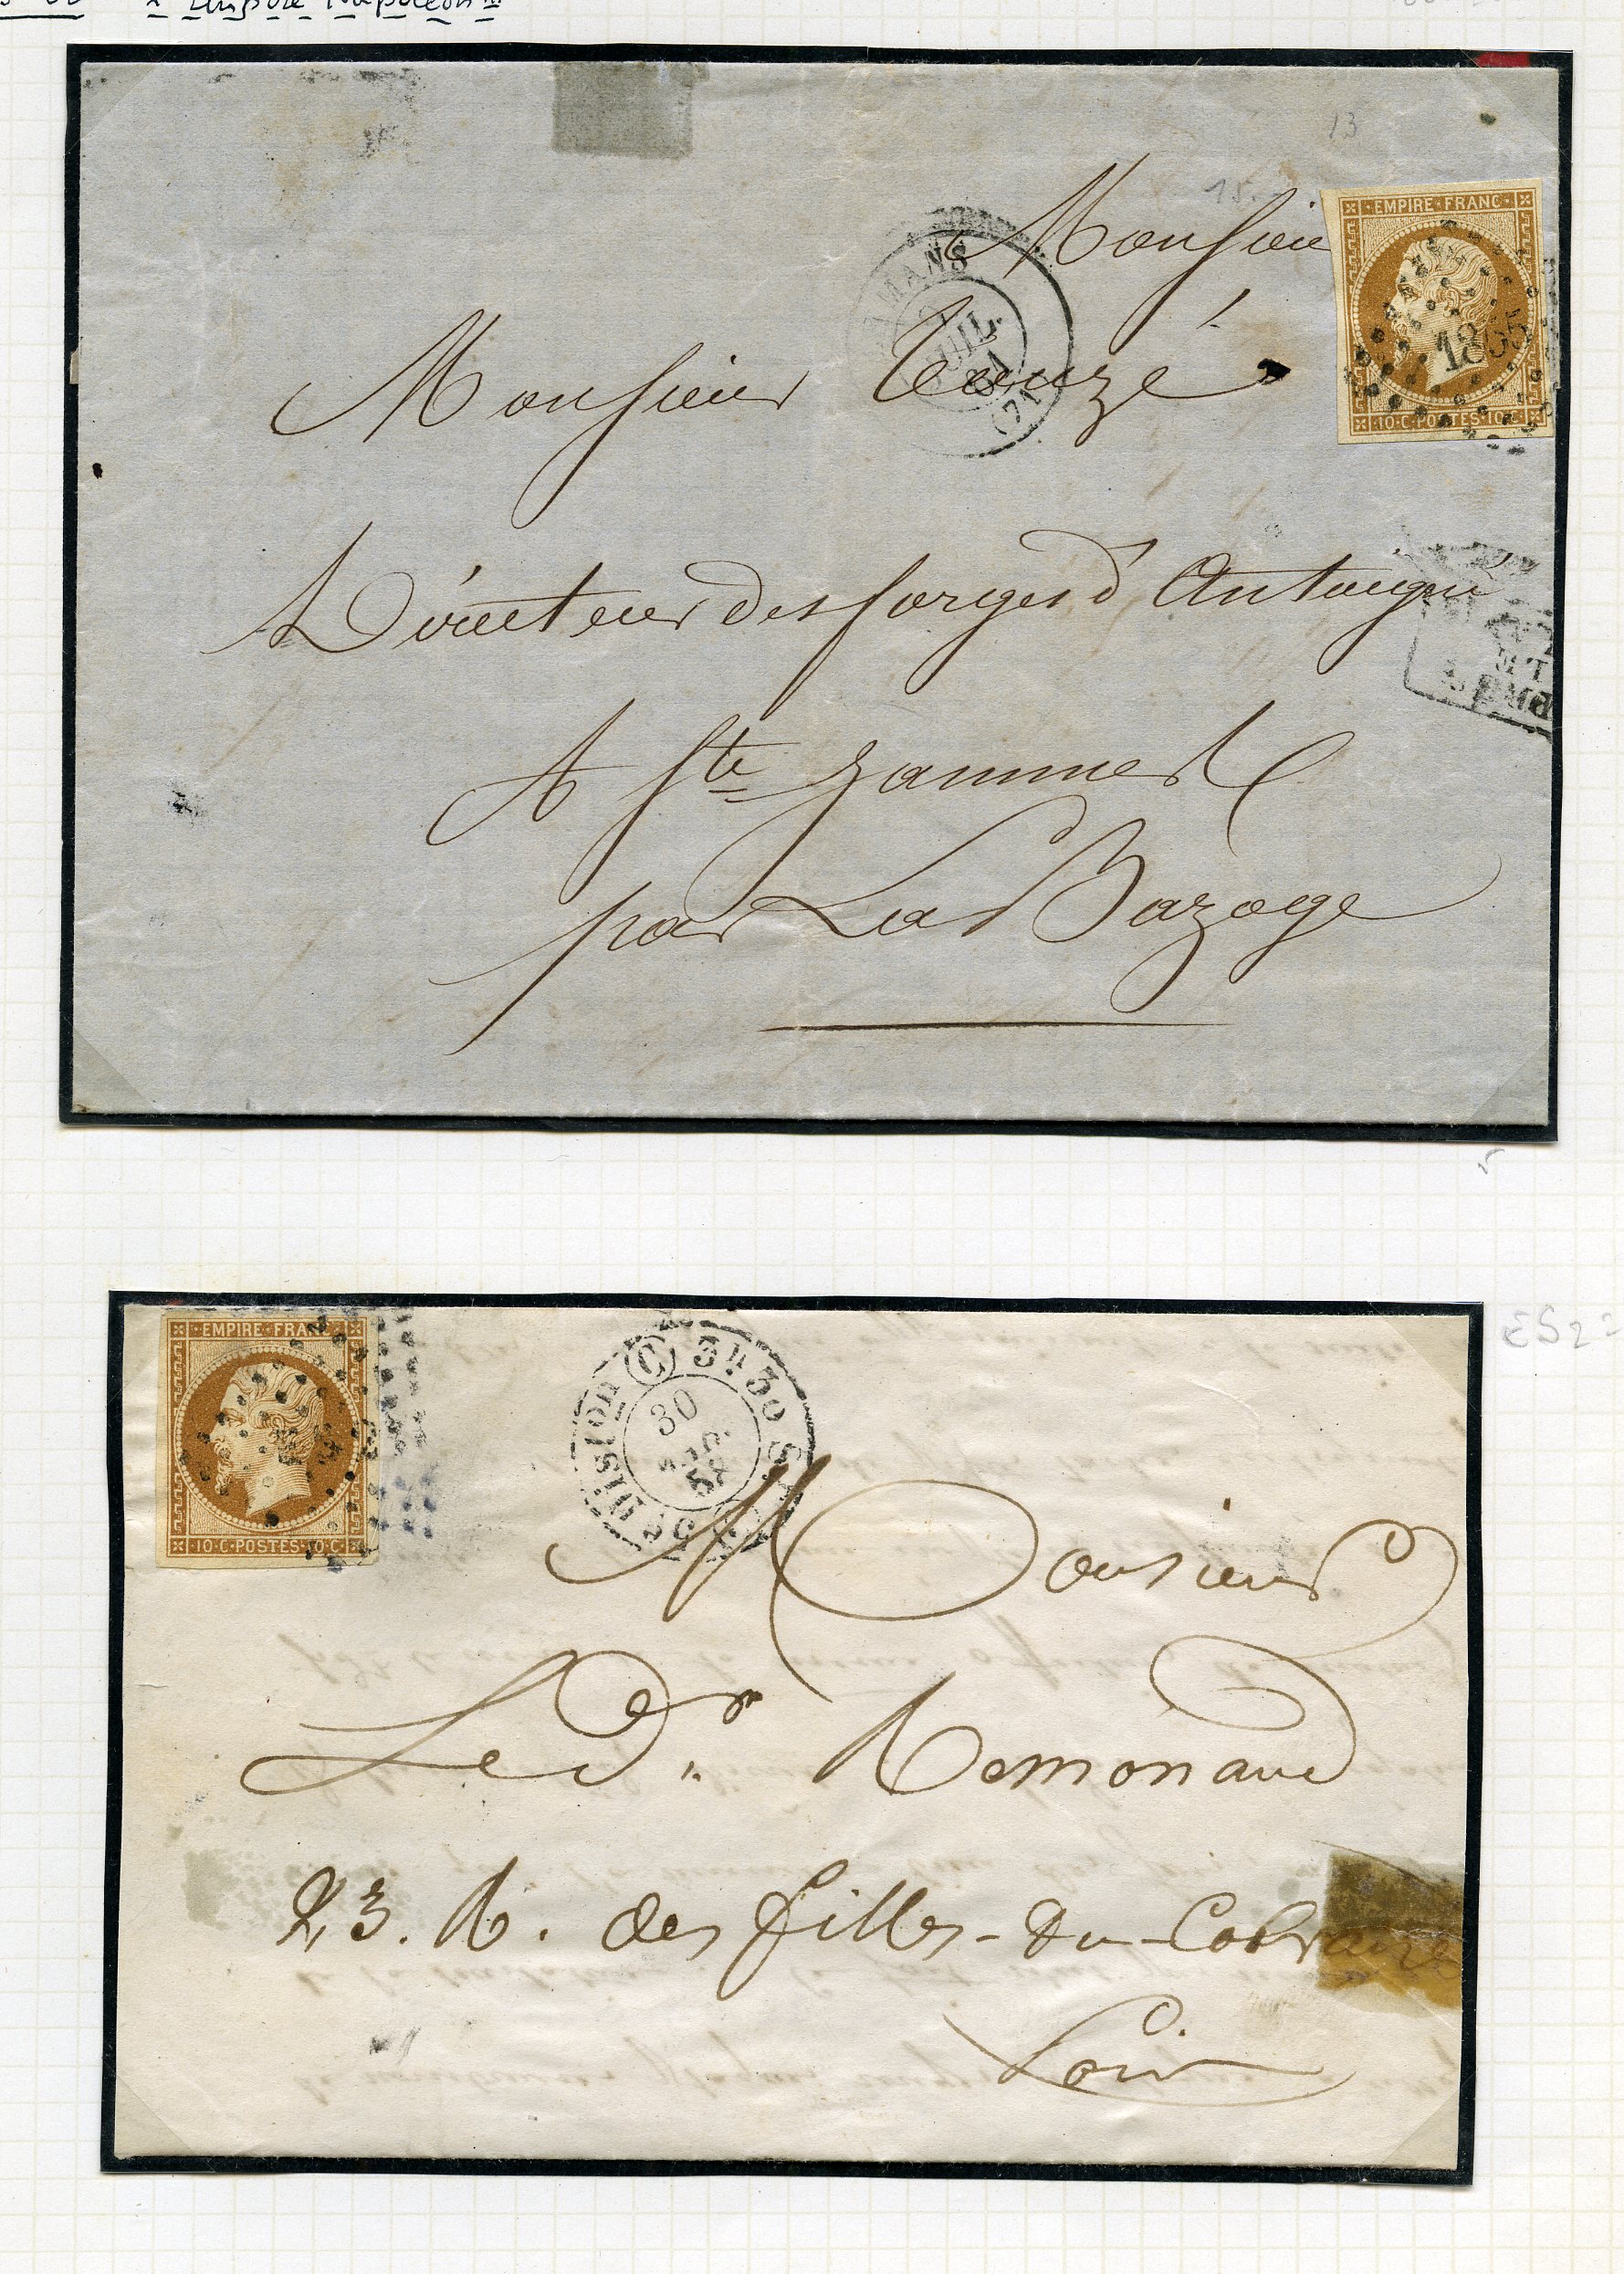 Empire Napoléon III
13
15.
Monsieu
EMPIRE FRANC
1865
10·C·POSTES·10·C
MANS
JUIL.
(71)
Monsieur Touzé
Directeur des forges d'Antoigné
A Ste Jammes
par La Bazoge
EMPIRE FRANC
10·C·POSTES·10·C
Distion (C) 3h. 30 S.
30
Monsieur
Le Dr. Remonaud
23. R. des filles-du-Calvaire